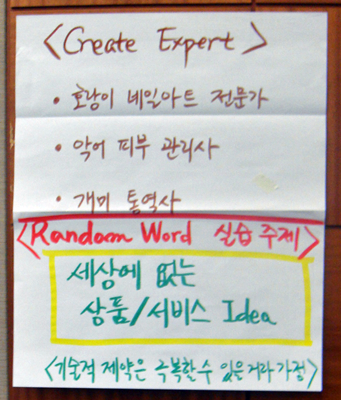 <Create Expert>
• 호랑이 네일아트 전문가
• 악어 피부 관리사
• 개미 통역사
<Random Word 실습 주제>
세상에 없는
상품/서비스 Idea
<기술적 제약은 극복할 수 있을거라 가정>